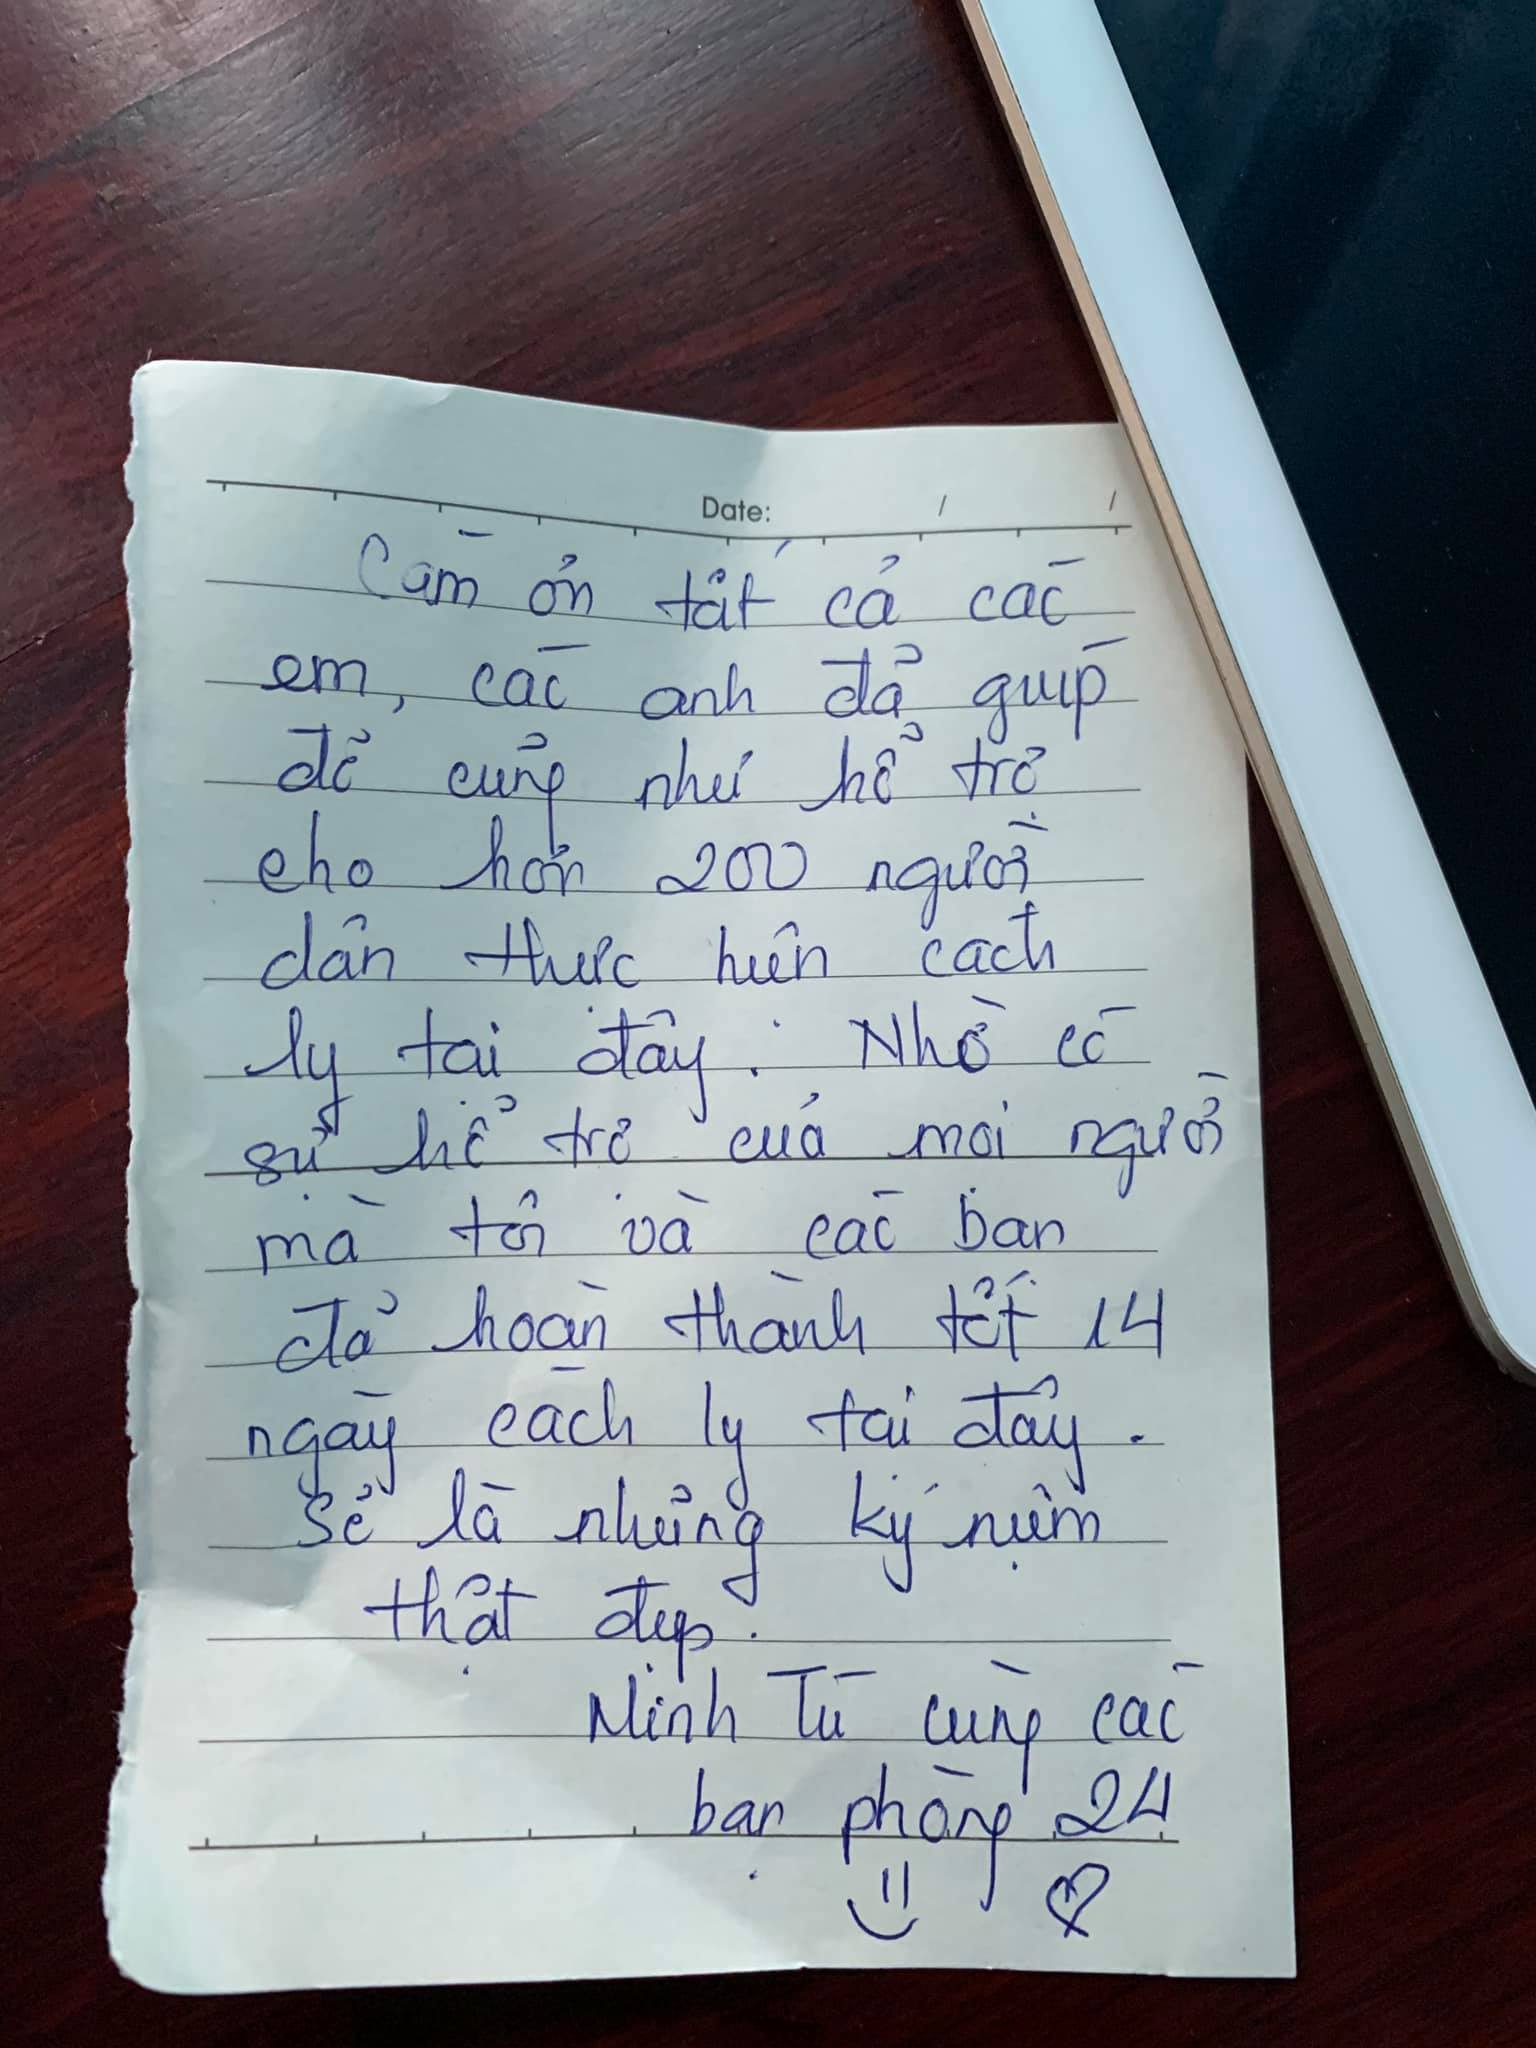 Date: / /
Cám ơn tất cả các
em, các anh đả giúp
đở củng như hổ trợ
cho hơn 200 người
dân thực hiện cách
ly tại đây. Nhờ có
sự hổ trợ của mọi người
mà tôi và các bạn
đả hoàn thành tốt 14
ngày cách ly tại đây.
Sẻ là nhửng ký niệm
thật đẹp.
Minh Tú cùng các
bạn phòng 24